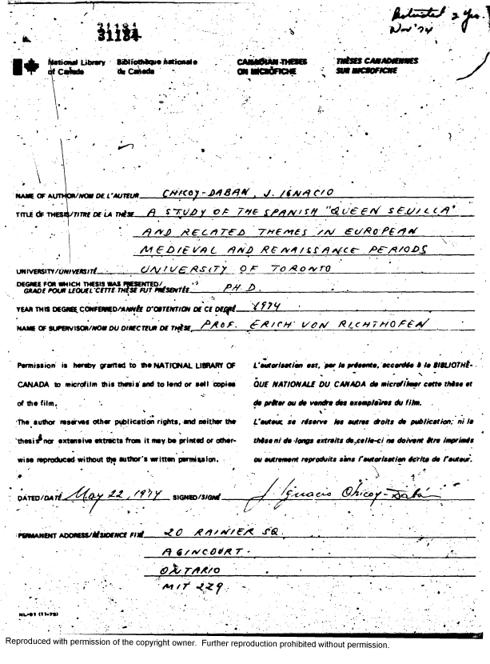 31184
31184
Restricted 2 yrs.
Nov '74
National Library
of Canada
Bibliothèque nationale
du Canada
CANADIAN THESES
ON MICROFICHE
THÈSES CANADIENNES
SUR MICROFICHE
NAME OF AUTHOR/NOM DE L'AUTEUR CHICOY-DABAN, J. IGNACIO
TITLE OF THESIS/TITRE DE LA THÈSE A STUDY OF THE SPANISH "QUEEN SEVILLA"
AND RELATED THEMES IN EUROPEAN
MEDIEVAL AND RENAISSANCE PERIODS
UNIVERSITY/UNIVERSITÉ UNIVERSITY OF TORONTO
DEGREE FOR WHICH THESIS WAS PRESENTED/
GRADE POUR LEQUEL CETTE THÈSE FUT PRÉSENTÉE PH.D.
YEAR THIS DEGREE CONFERRED/ANNÉE D'OBTENTION DE CE DEGRÉ 1974
NAME OF SUPERVISOR/NOM DU DIRECTEUR DE THÈSE PROF. ERICH VON RICHTHOFEN
Permission is hereby granted to the NATIONAL LIBRARY OF
CANADA to microfilm this thesis and to lend or sell copies
of the film.
The author reserves other publication rights, and neither the
thesis nor extensive extracts from it may be printed or other-
wise reproduced without the author's written permission.
L'autorisation est, par la présente, accordée à la BIBLIOTHÈ-
QUE NATIONALE DU CANADA de microfilmer cette thèse et
de prêter ou de vendre des exemplaires du film.
L'auteur se réserve les autres droits de publication; ni la
thèse ni de longs extraits de celle-ci ne doivent être imprimés
ou autrement reproduits sans l'autorisation écrite de l'auteur.
DATED/DATÉ May 22, 1974 SIGNED/SIGNÉ J. Ignacio Chicoy-Dabán
PERMANENT ADDRESS/RÉSIDENCE FIXE 20 RAINIER SQ.
AGINCOURT.
ONTARIO
M1T 2Z9
NL-91 (11-72)
Reproduced with permission of the copyright owner. Further reproduction prohibited without permission.